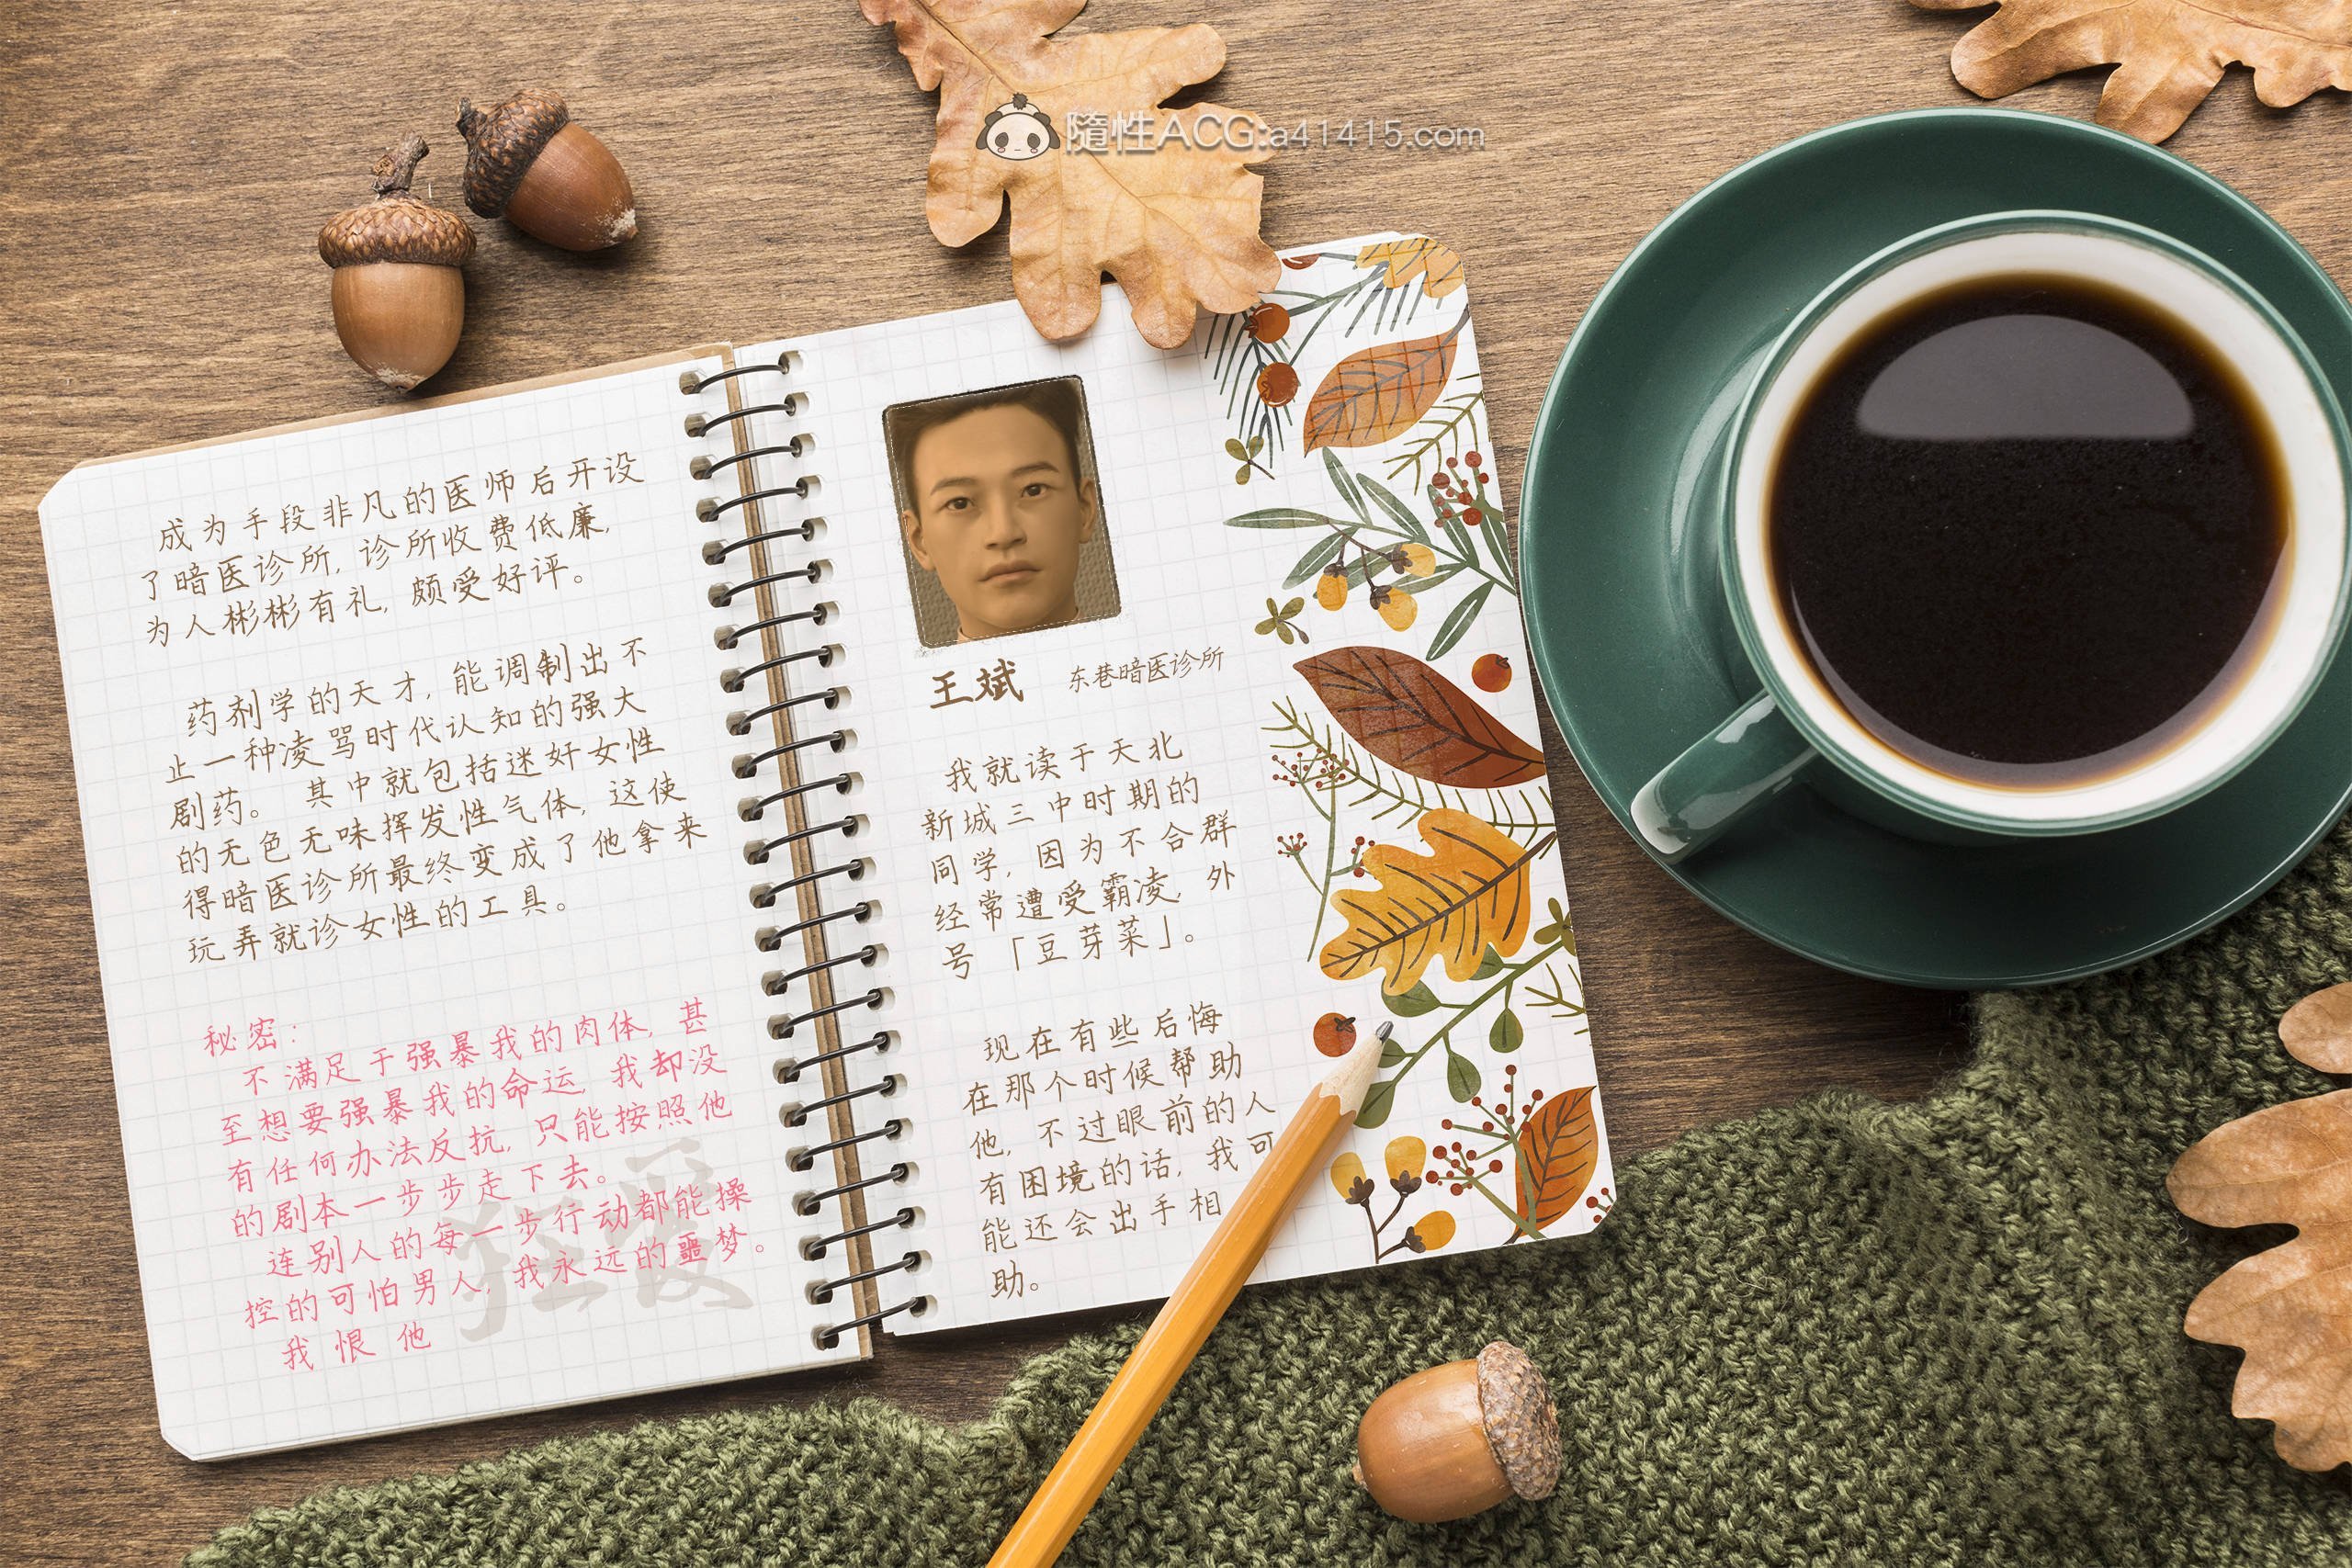 隨性ACG:a41415.com
成为手段非凡的医师后开设
了暗医诊所，诊所收费低廉，
为人彬彬有礼，颇受好评。
药剂学的天才，能调制出不
止一种凌骂时代认知的强大
剧药。 其中就包括迷奸女性
的无色无味挥发性气体，这使
得暗医诊所最终变成了他拿来
玩弄就诊女性的工具。
秘密：
不满足于强暴我的肉体，甚
至想要强暴我的命运，我却没
有任何办法反抗，只能按照他
的剧本一步步走下去。
连别人的每一步行动都能操
控的可怕男人，我永远的噩梦。
我恨他
狂爱
王斌 东巷暗医诊所
我就读于天北
新城三中时期的
同学，因为不合群
经常遭受霸凌，外
号「豆芽菜」。
现在有些后悔
在那个时候帮助
他，不过眼前的人
有困境的话，我可
能还会出手相
助。